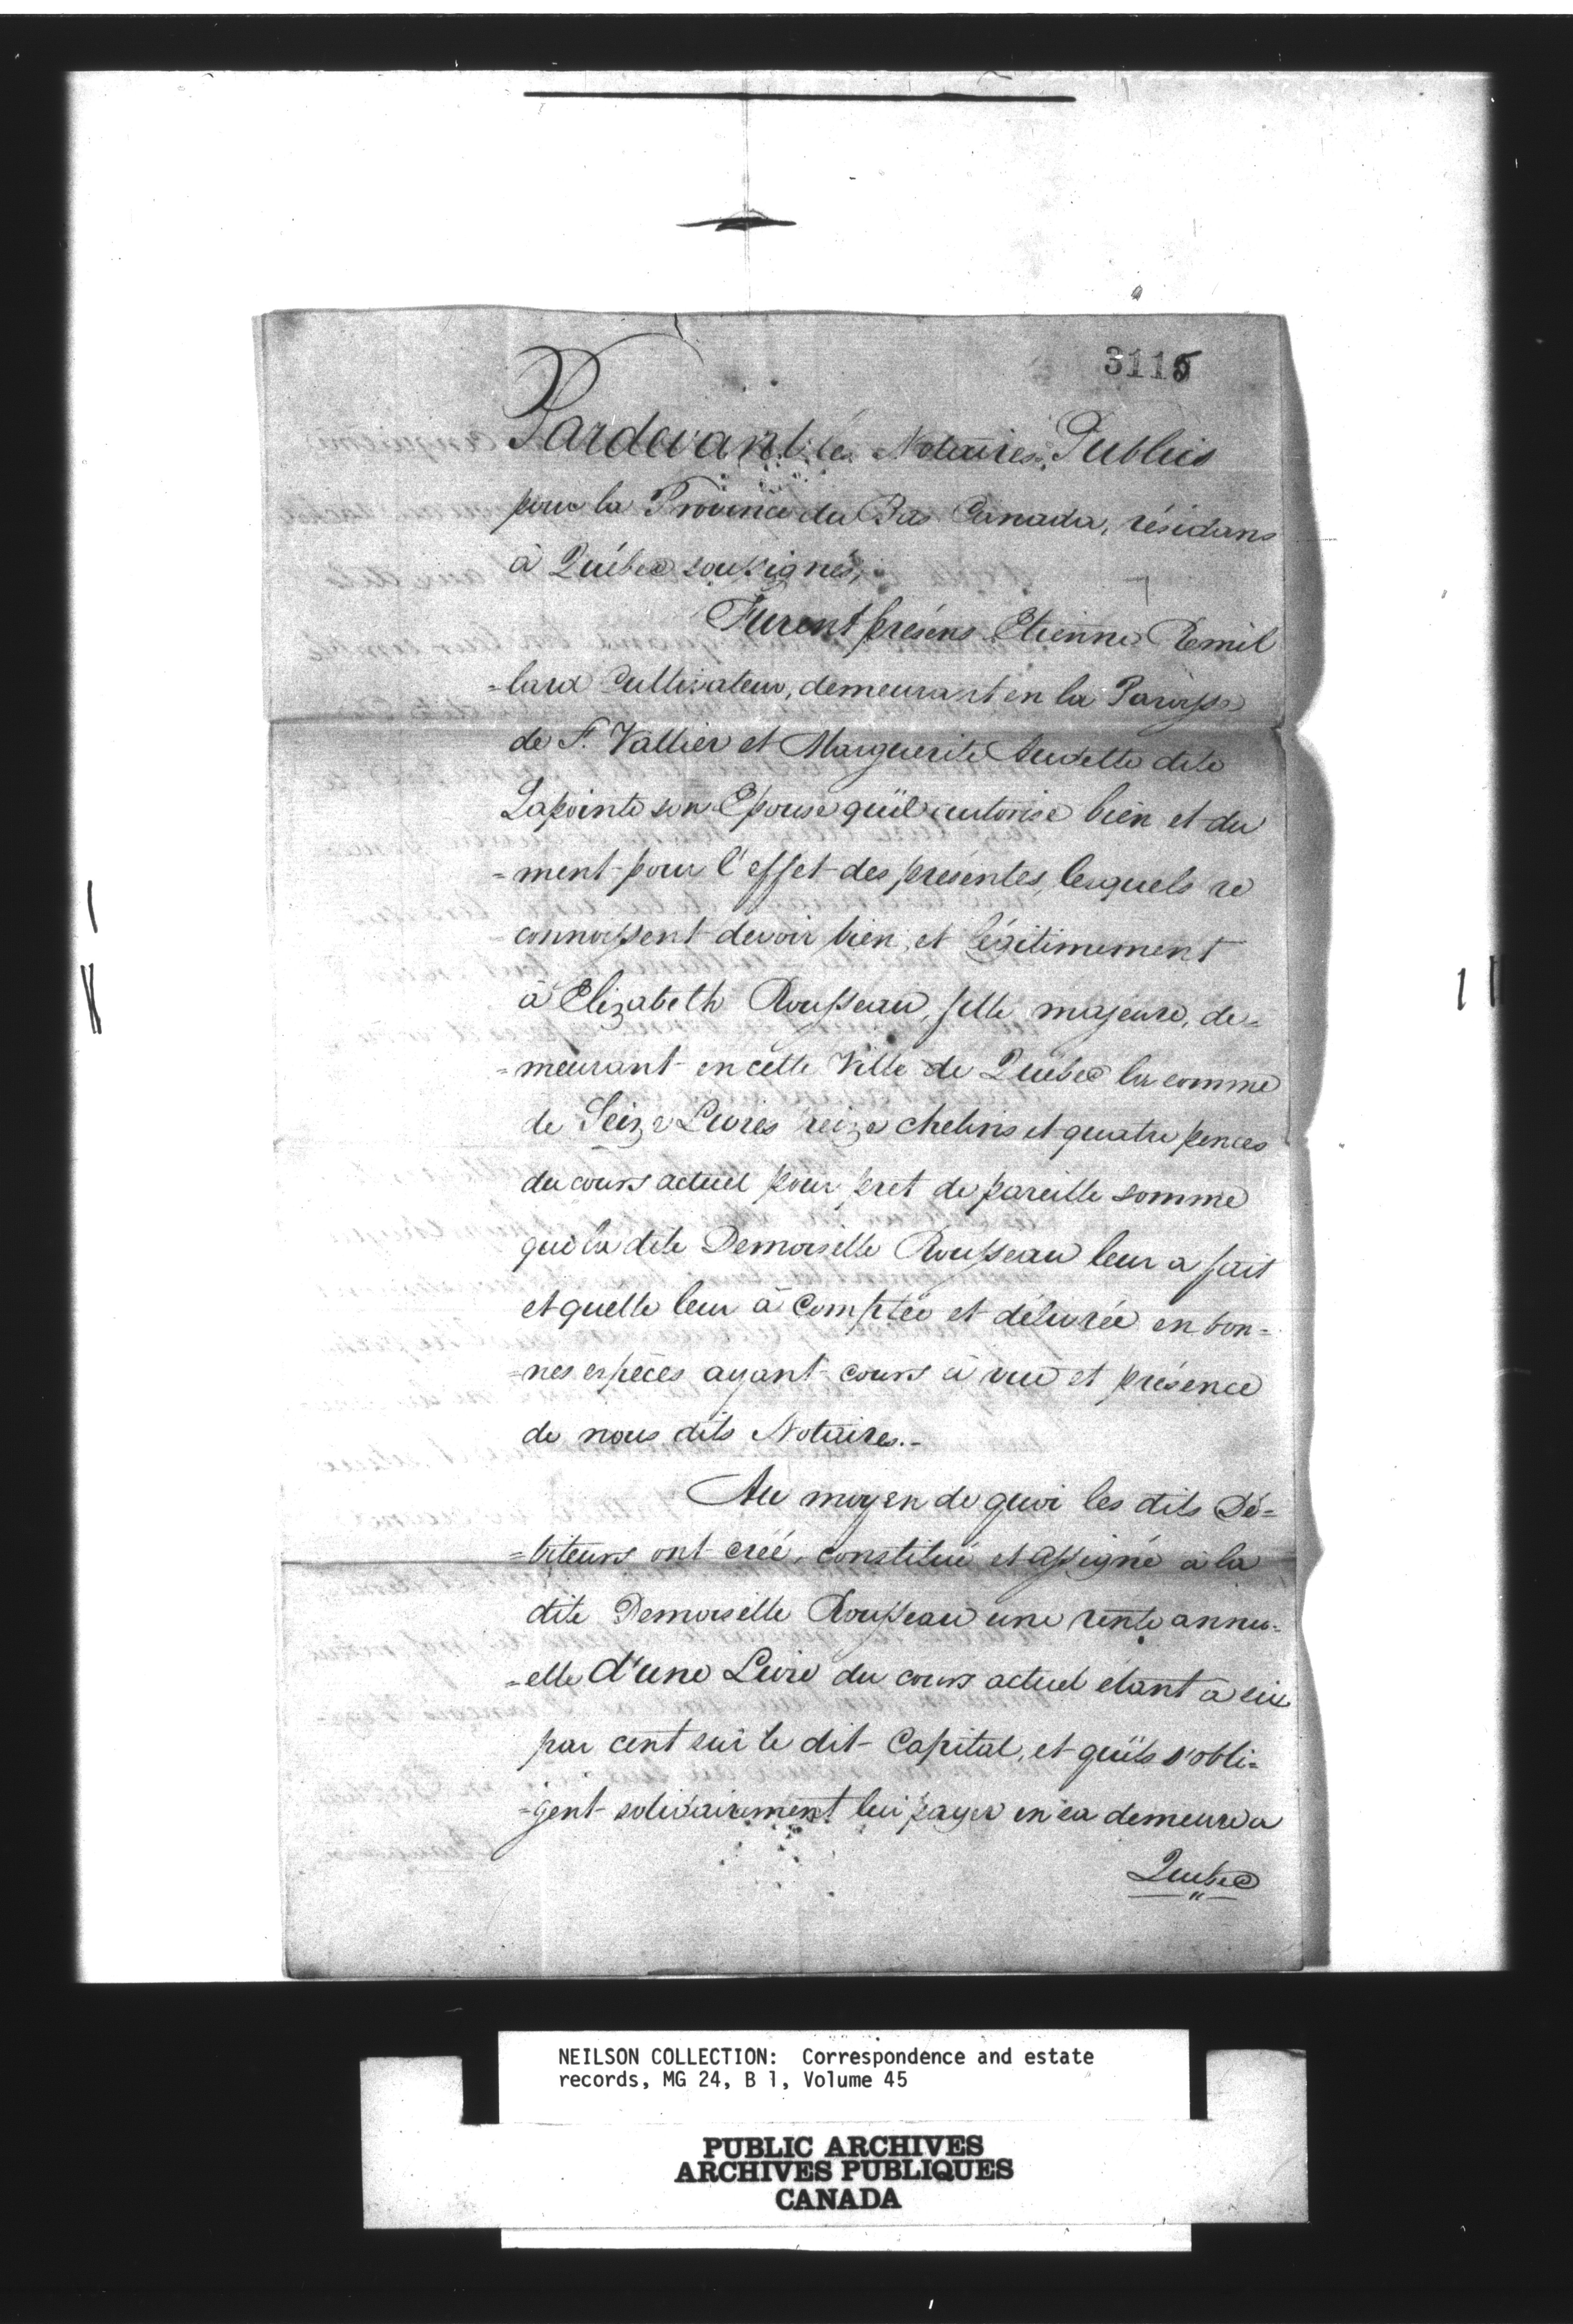 3115
Pardevant les Notaires Publics
pour la Province du Bas Canada, résidans
à Québec soussignés,
Furent présens Etienne Remil
=lard Cultivateur, demeurant en la Paroisse
de St. Vallier et Marguerite Audette dite
Lapointe son Epouse qu'il autorise bien et du
=ment pour l'effet des présentes, lesquels re
connoissent devoir bien et légitimement
à Elizabeth Rousseau, fille majeure, de=
=meurant en cette Ville de Québec la somme
de Seize Livres treize chelins et quatre pences
du cours actuel pour pret de pareille somme
que la dite Demoiselle Rousseau leur a fait
et quelle leur à Comptée et délivrée en bon=
=nes espèces ayant cours à vue et présence
de nous dits Notaires.-
Au moyen de quoi les dits Dé=
=biteurs ont créé, constitué et assigné à la
dite Demoiselle Rousseau une rente annu=
=elle d'une Livre du cours actuel étant à six
par cent sur le dit Capital, et qu'ils s'obli=
=gent solidairement lui payer en sa demeure a
Québec
NEILSON COLLECTION: Correspondence and estate
records, MG 24, B 1, Volume 45
PUBLIC ARCHIVES
ARCHIVES PUBLIQUES
CANADA